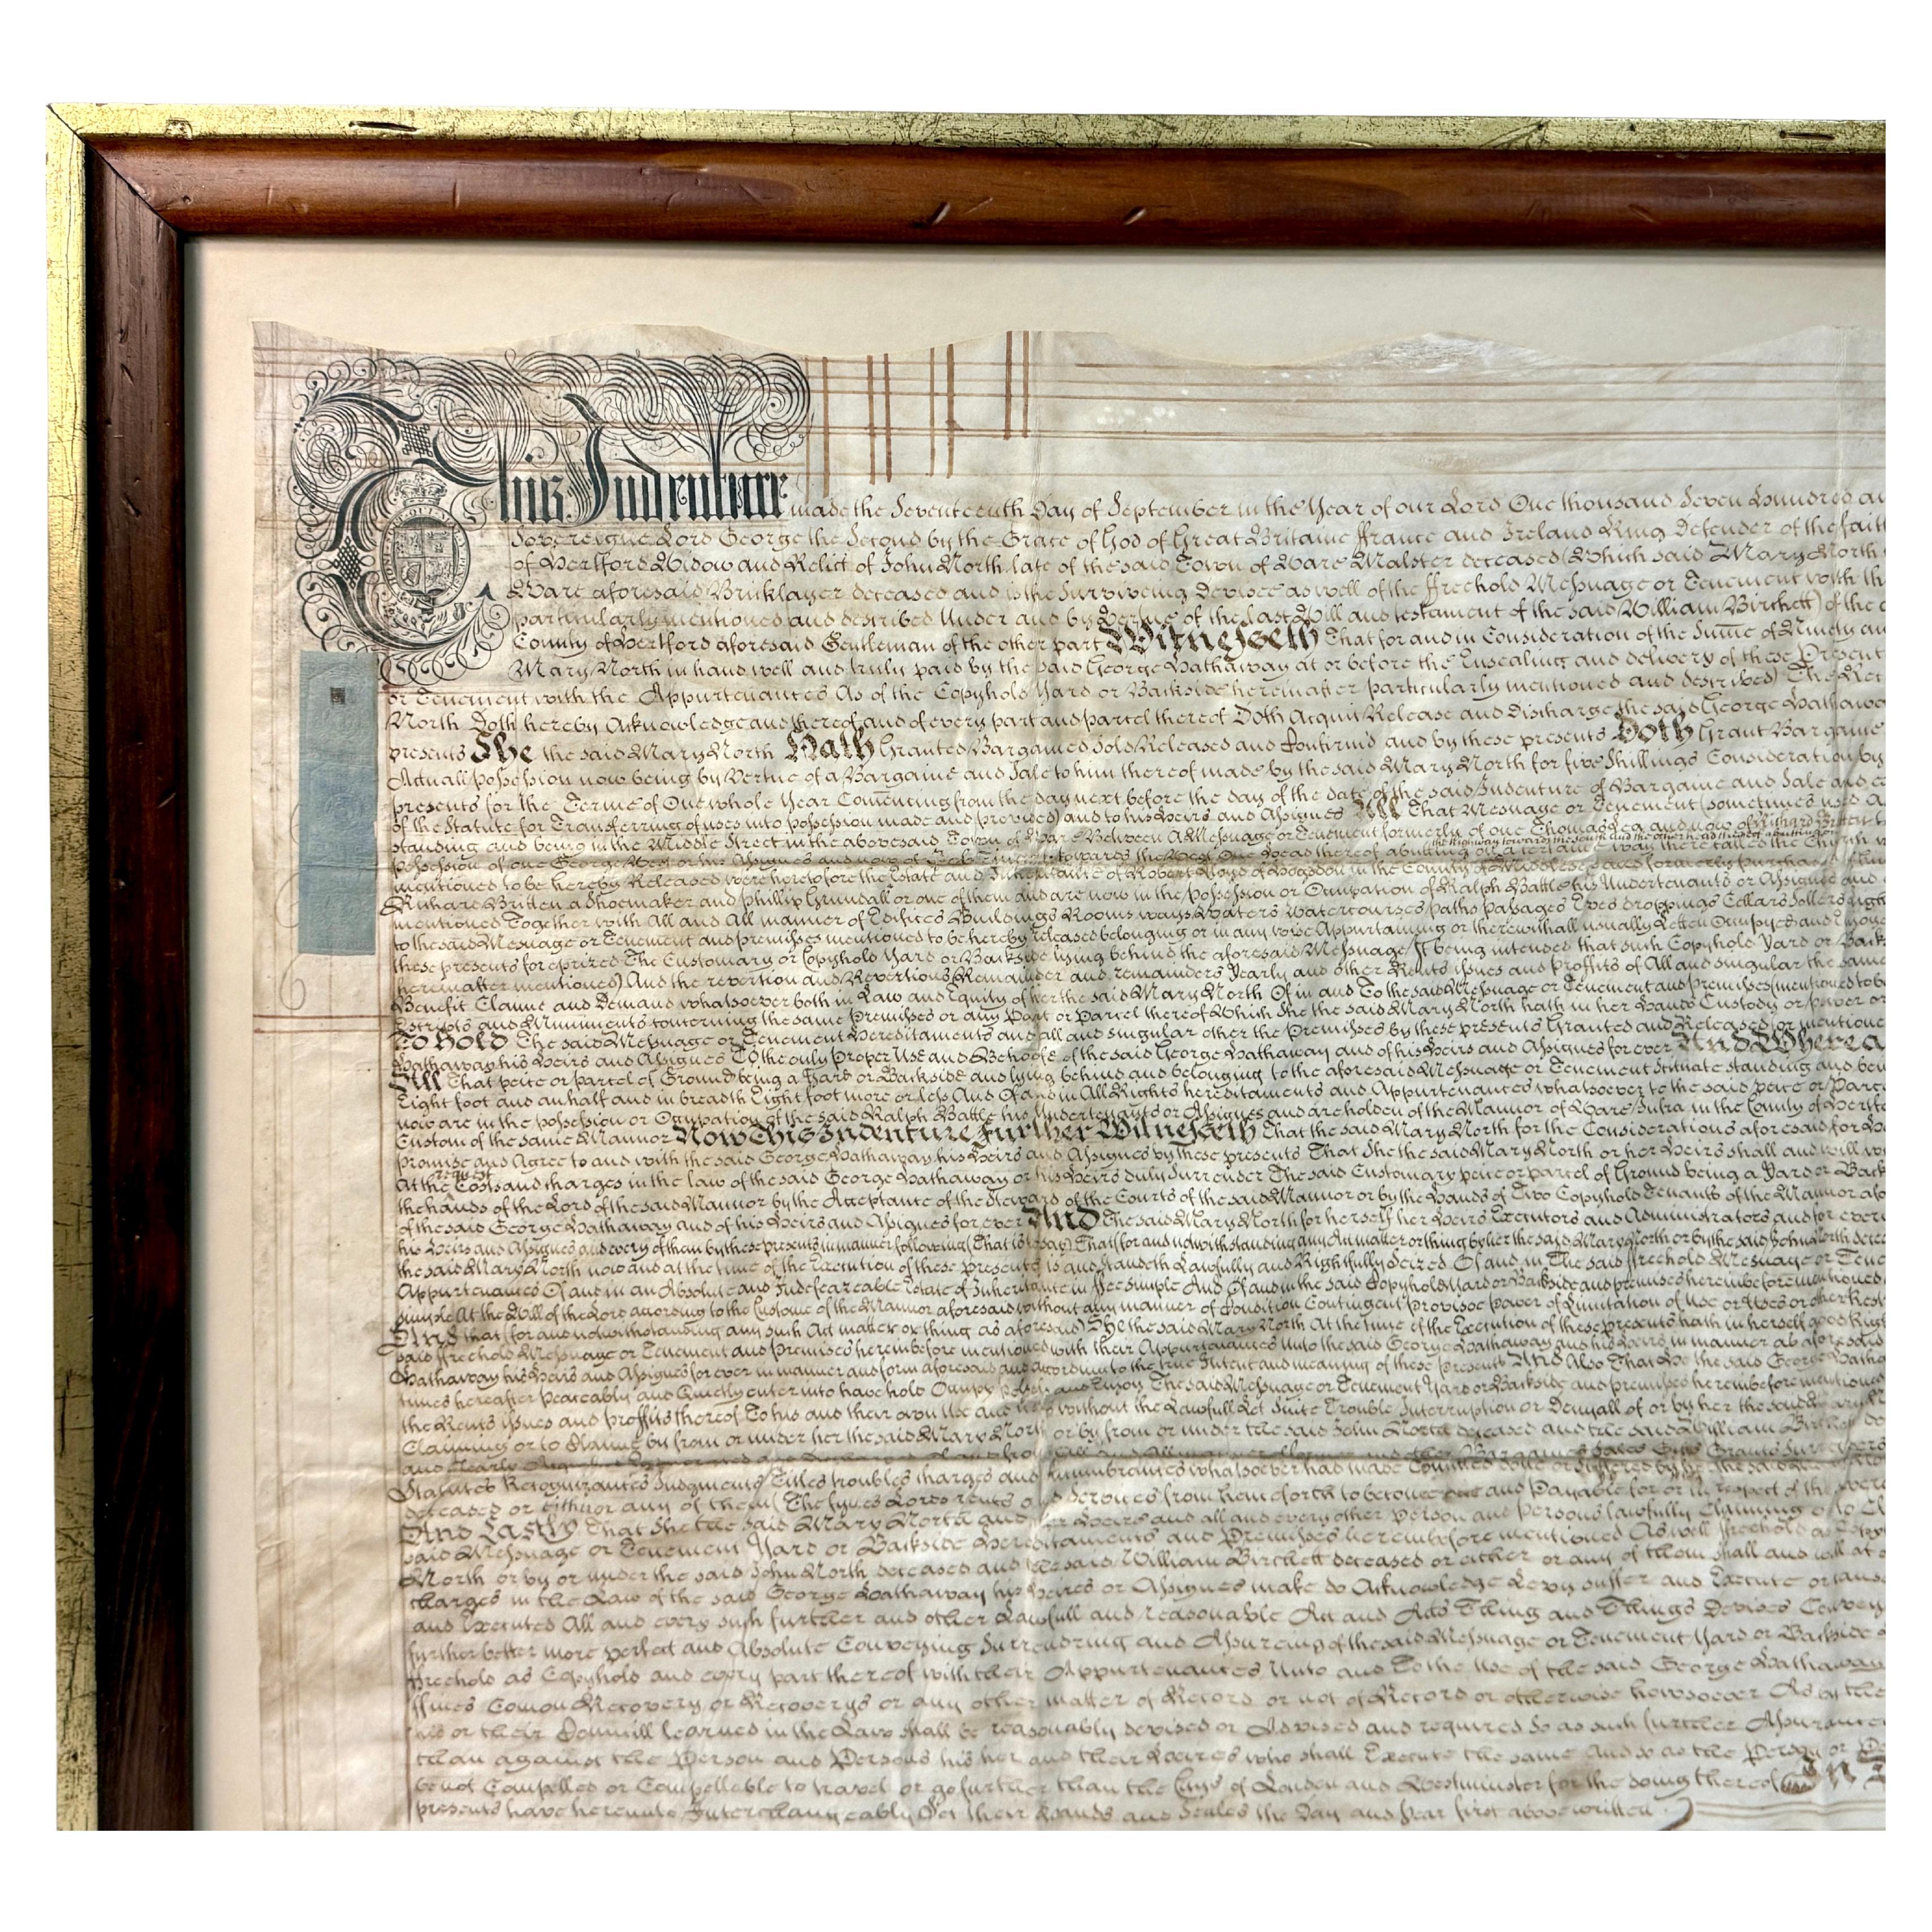 This Indenture made the Seventeenth Day of September in the Year of our Lord One thousand Seven Hundred an
Sovereigne Lord George the Second by the Grace of God of Great Britaine ffrance and Ireland King Defender of the faith
of Hertford Widow and Relict of John North late of the said Town of Ware Malster deceased (Which said Mary North
Ware aforesaid Bricklayer deceased and is the Surviveing Devisee as well of the ffreehold Messuage or Tenement with th
particularly mentioned and described Under and by Vertue of the last Will and testament of the said William Birchett) of the o
County of Hertford aforesaid Gentleman of the other part Witnesseth That for and in Consideration of the Sume of Ninety an
Mary North in hand well and truly paid by the said George Hathaway at or before the Ensealing and delivery of these Present
or Tenement with the Appurtenances As of the Copyhold Yard or Backside hereinafter particularly mentioned and described) The Rec
North Doth hereby Acknowledge and thereof and of every part and parcel thereof Doth Acquit Release and Discharge the said George Hathaway
presents She the said Mary North Hath Granted Bargained Sold Released and Confirm'd and by these presents Doth Grant Bargaine
Actuall Possession now being by Vertue of a Bargaine and Sale to him thereof made by the said Mary North for five Shillings Consideration by
presents for the Terme of One whole Year Comencing from the day next before the day of the date of the said Indenture of Bargaine and Sale and
of the Statute for Transferring of uses into Possession made and provided) and to his Heirs and Assignes All That Messuage or Tenement (sometimes used
standing and being in the Middle Street in the abovesaid Town of Ware Between A Messuage or Tenement formerly of one Thomas Lea and now of Richard Britten
the Highway towards the South and the other head thereof abutting on
Possession of one George West or his Assignes and now of towards the West One head thereof abutting on a certaine way there called the Church
mentioned to be hereby Released were heretofore the Estate and Inheritance of Robert of Hogsdon in the County of Middlesex and formerly purchased
Richard Britten a Shoemaker and Phillip Grundall or one of them and are now in the Possession or Occupation of Ralph Battle his Undertenants or Assignes and
mentioned Together with All and All manner of Edifices Buildings Rooms ways Waters Watercourses paths passages Eves droppings Cellars Sollers Light
to the said Messuage or Tenement and premisses mentioned to be hereby released belonging or in any wise Appurtaining or therewithall usually Letten Occupyed and Enjoye
these presents foreprized The Customary or Copyhold Yard or Backside lying behind the aforesaid Messuage It being intended that such Copyhold Yard or Back
hereinafter mentioned) And the revertion and Revertions Remainder and remainders Yearly and other Rents issues and Proffits of All and singular the same
Benefit Claime and Demand whatsoever both in Law and Equity of her the said Mary North Of in and To the said Messuage or Tenement and premisses mentioned to b
Escripts and Muniments concerning the same Premisses or any Part or Parcel thereof Which She the said Mary North hath in her hands Custody or power or
To Hold The said Messuage or Tenement Hereditaments and all and singular other the Premisses by these presents Granted and Released or mentione
Hathaway his Heirs and Assignes To the only Proper Use and Behoofe of the said George Hathaway and of his Heirs and Assignes for ever And Wherea
All That peice or parcel of Ground being a Yard or Backside and lying behind and belonging to the aforesaid Messuage or Tenement Scituate standing and bein
Eight foot and an half and in breadth Eight foot more or less And Of and in All Rights hereditaments and Appurtenances whatsoever to the said peice or Parce
now are in the possession or Occupation of the said Ralph Battle his Undertenants or Assignes and are holden of the Mannor of Ware Infra in the County of Hertfo
Custom of the same Mannor Now This Indenture Further Witnesseth That the said Mary North for the Considerations aforesaid for
Promise and Agree to and with the said George Hathaway his Heirs and Assignes by these presents That She the said Mary North or her Heirs shall and will
request
At the Costs and charges in the law of the said George Hathaway or his Heirs duly Surrender The said Customary peice or parcel of Ground being a Yard or Back
the hands of the Lord of the said Mannor by the Acceptance of the Steward of the Courts of the said Mannor or by the Hands of Two Copyhold Tenants of the Mannor afo
of the said George Hathaway and of his Heirs and Assignes for ever And The said Mary North for herself her Heirs Executors and Administrators and for ever
his Heirs and Assignes and every of them by these presents in manner following (That is to say) That (for and notwithstanding any Act matter or thing by her the said Mary North or by the said John North decea
the said Mary North now and at the time of the Execution of these presents is and standeth Lawfully and Rightfully Seized Of and in The said ffreehold Messuage or Tene
Appurtenances Of and in an Absolute and Indefeazable Estate of Inheritance in ffee simple And Of and in the said Copyhold Yard or Backside and premisses hereinbefore mentioned
simple At the Will of the Lord according to the Custome of the Mannor aforesaid without any manner of Condition Contingent Provisoe Power of Limitation of Use or Uses or other Rest
And that (for and notwithstanding any such Act matter or thing as aforesaid) She the said Mary North At the time of the Execution of these presents hath in herself good Righ
said ffreehold Messuage or Tenement and Premisses hereinbefore mentioned with their Appurtenances Unto the said George Hathaway and his Heirs in manner as aforesaid
Hathaway his Heirs and Assignes for ever in manner and form aforesaid and according to the true Intent and meaning of these Presents And Also That He the said George Hatha
times hereafter Peaceably and Quietly enter into have hold Occupy and Enjoy The said Messuage or Tenement Yard or Backside and premisses hereinbefore mentioned
the Rents Issues and proffits thereof To his and their own Use and Uses without the Lawfull Let Suite Trouble Interruption or Denyall of or by her the said Mary N
Claiming or to Claime by from or under her the said Mary North or by from or under the said John North deceased and the said William Birchett
and Clearly
Statutes Recognizances Judgments Titles troubles charges and Incumbrances whatsoever had made Comitted done or Suffered by
deceased or either or any of them (The ffynes Lords rents and services from henceforth to become due and Payable for or in respect of the
And Lastly That She the said Mary North and her Heirs and all and every other Person and Persons lawfully Claiming or to Cl
said Messuage or Tenement Yard or Backside Hereditaments and Premisses hereinbefore mentioned As well ffreehold as Copy
North or by or under the said John North deceased and the said William Birchett deceased or either or any of them shall and will at
charges in the Law of the said George Hathaway his Heires or Assignes make do Acknowledge Levy suffer and Execute or cause
and Executed All and every such further and other Lawfull and reasonable Act and Acts Thing and Things Devises Convey
further better more perfect and Absolute Conveying Surrendring and Assureing of the said Messuage or Tenement Yard or Backside
ffreehold as Copyhold and every part thereof with their Appurtenances Unto and To the Use of the said George Hathaway
ffines Comon Recovery or Recoverys or any other matter of Record or not of Record or otherwise howsoever As by the
his or their Councill learned in the Law shall be reasonably devised or Advised and required So as such further Assurance
than against the Person and Persons his her and their Heires who shall Execute the same And so as the Person or Pe
be not Compelled or Compellable to travel or go further than the Citys of London and Westminster for the doing thereof In
presents have hereunto Interchangeably Set their Hands and Seales the Day and Year first abovewritten